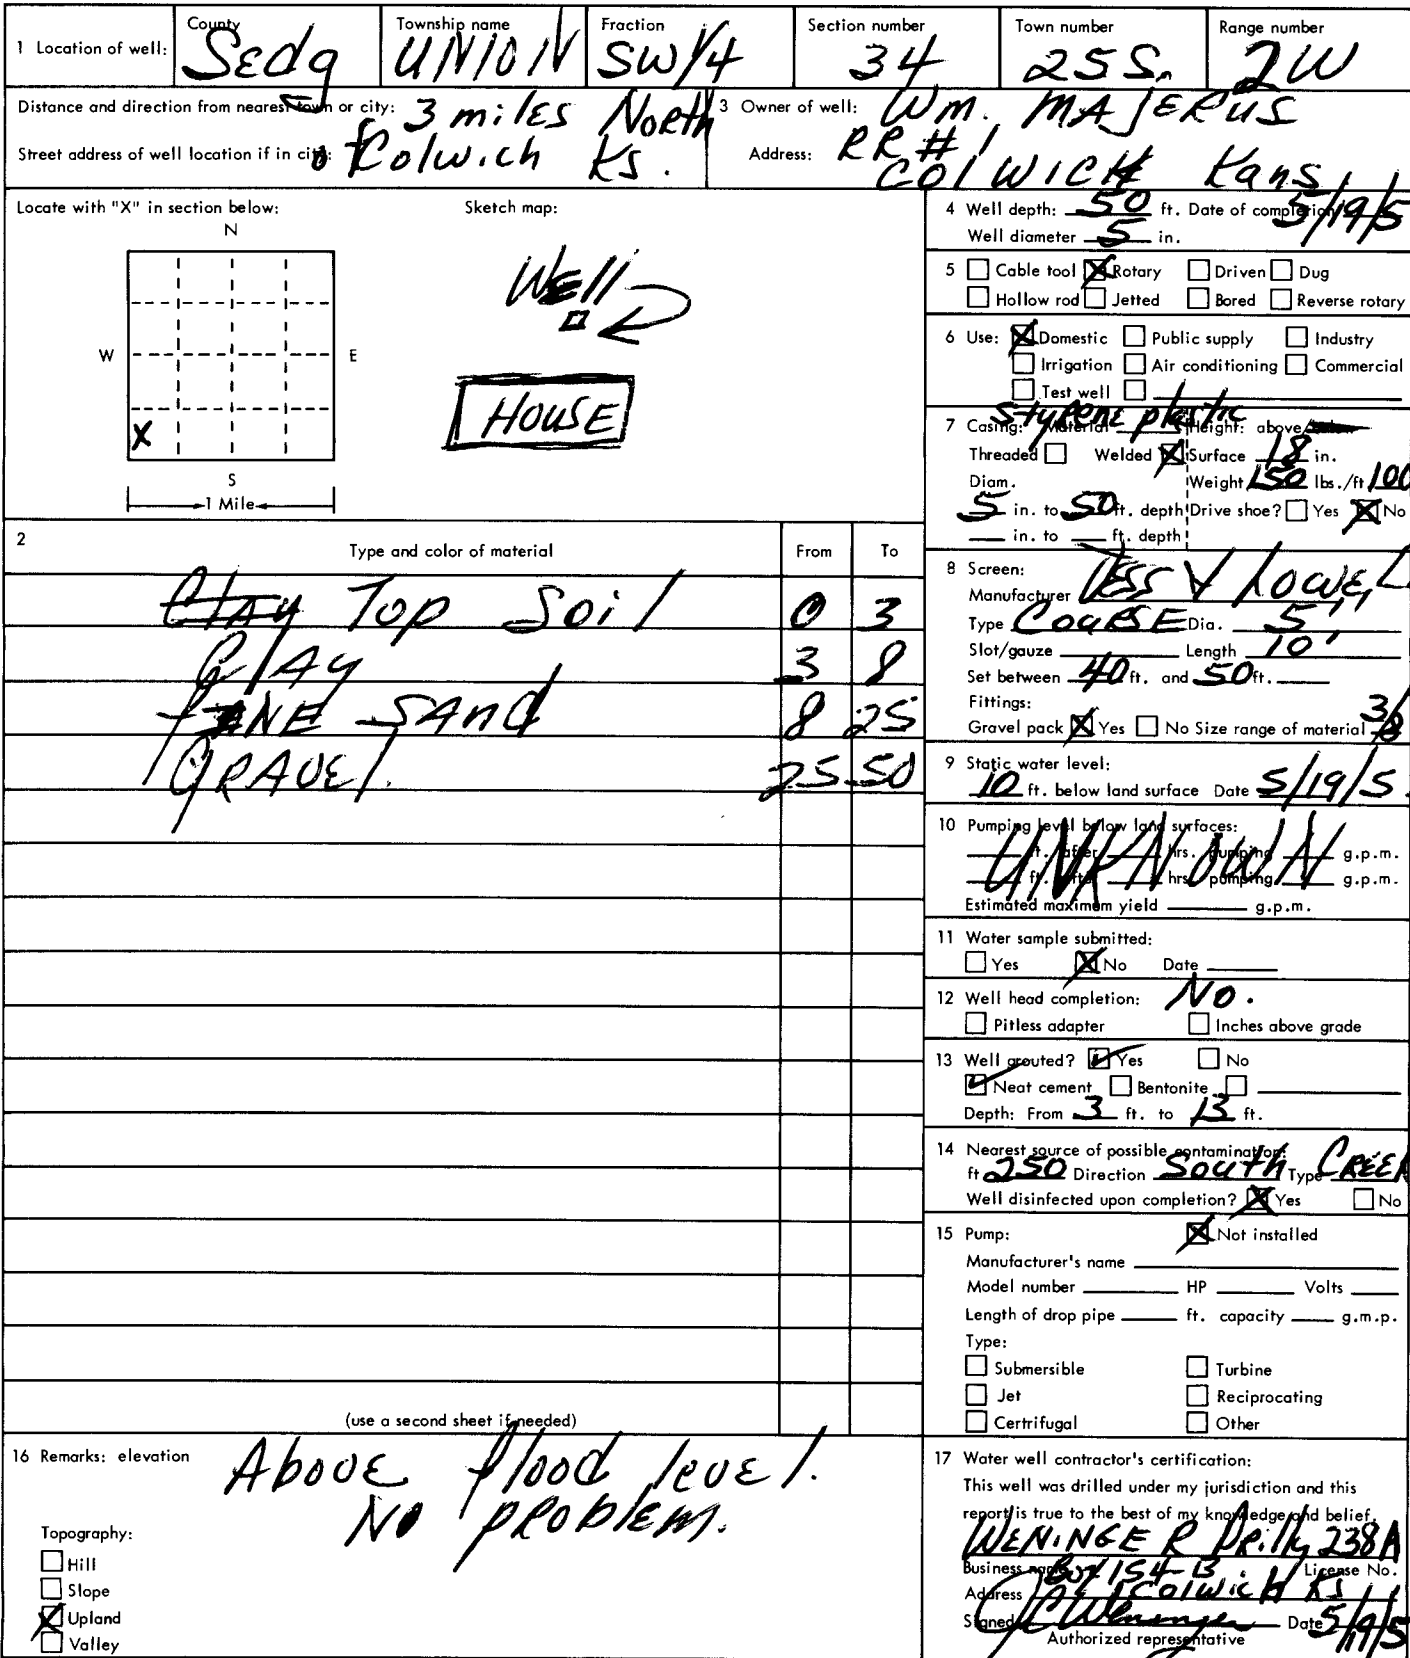 1 Location of well: County Sedg Township name UNION Fraction SW 1/4 Section number 34 Town number 25S. Range number 2W
Distance and direction from nearest town or city: 3 miles North
Street address of well location if in city: of Colwich Ks.
3 Owner of well: Wm. MAJERUS
Address: RR # 1
COlWICH Kans
Locate with "X" in section below:
Sketch map:
N
W
E
X
S
1 Mile
WEll
HOUSE
4 Well depth: 50 ft. Date of completion 5/19/5
Well diameter 5 in.
5 Cable tool X Rotary Driven Dug
Hollow rod Jetted Bored Reverse rotary
6 Use: X Domestic Public supply Industry
Irrigation Air conditioning Commercial
Test well
7 Casing: Material Styrene plastic Height: above/
Threaded Welded X Surface 18 in.
Diam. Weight 150 lbs./ft 100
5 in. to 50 ft. depth Drive shoe? Yes X No
in. to ft. depth
2 Type and color of material From To
Clay Top Soil 0 3
Clay 3 8
FINE SANd 8 25
GRAVEl. 25 50
(use a second sheet if needed)
8 Screen:
Manufacturer
Type COURSE Dia. 5"
Slot/gauze Length 10'
Set between 40 ft. and 50 ft.
Fittings:
Gravel pack X Yes No Size range of material 3/8
9 Static water level:
10 ft. below land surface Date 5/19/5
10 Pumping level below land surfaces:
ft. after hrs. pumping g.p.m.
UNKNOWN
ft. after hrs. pumping g.p.m.
Estimated maximum yield g.p.m.
11 Water sample submitted:
Yes X No Date
12 Well head completion: NO.
Pitless adapter Inches above grade
13 Well grouted? ✓ Yes No
✓ Neat cement Bentonite
Depth: From 3 ft. to 13 ft.
14 Nearest source of possible contamination:
ft 250 Direction South Type CREEK
Well disinfected upon completion? X Yes No
15 Pump: X Not installed
Manufacturer's name
Model number HP Volts
Length of drop pipe ft. capacity g.m.p.
Type:
Submersible Turbine
Jet Reciprocating
Certrifugal Other
16 Remarks: elevation Above flood level.
No problem.
Topography:
Hill
Slope
X Upland
Valley
17 Water well contractor's certification:
This well was drilled under my jurisdiction and this
report is true to the best of my knowledge and belief.
WENINGER Drillg 238A
Business name License No.
Address Box 154-B Colwich Ks
Signed JC Weninger Date 5/19/5
Authorized representative